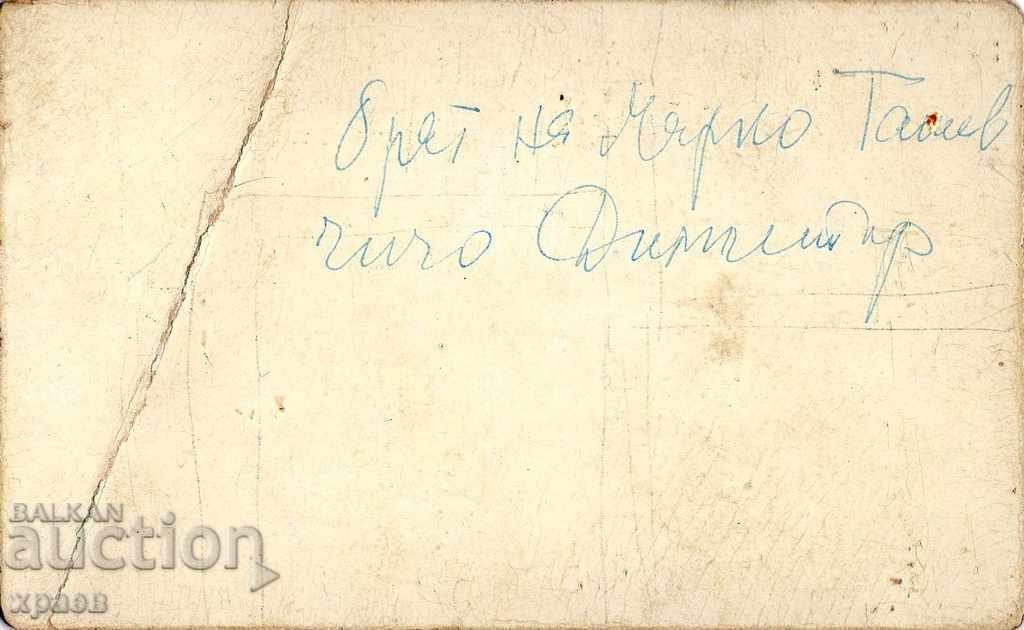 брат на Марко Ганев
чичо Димитър
BALKAN
auction
храов